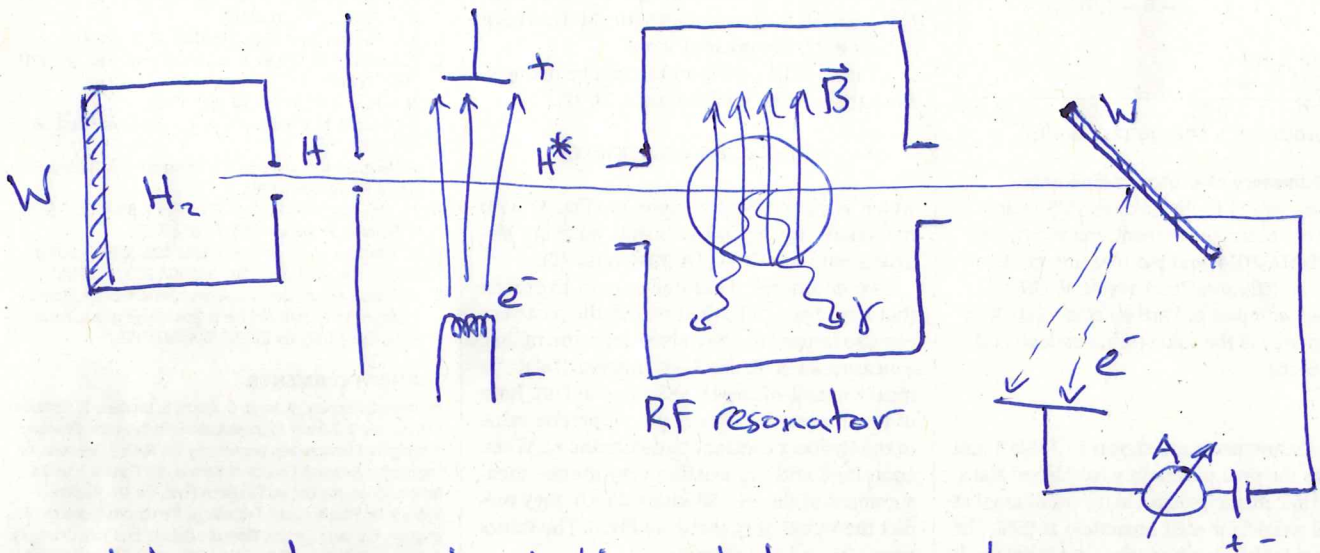 W
H₂
H
+
e⁻
−
H*
B⃗
γ
RF resonator
W
e⁻
A
+ -